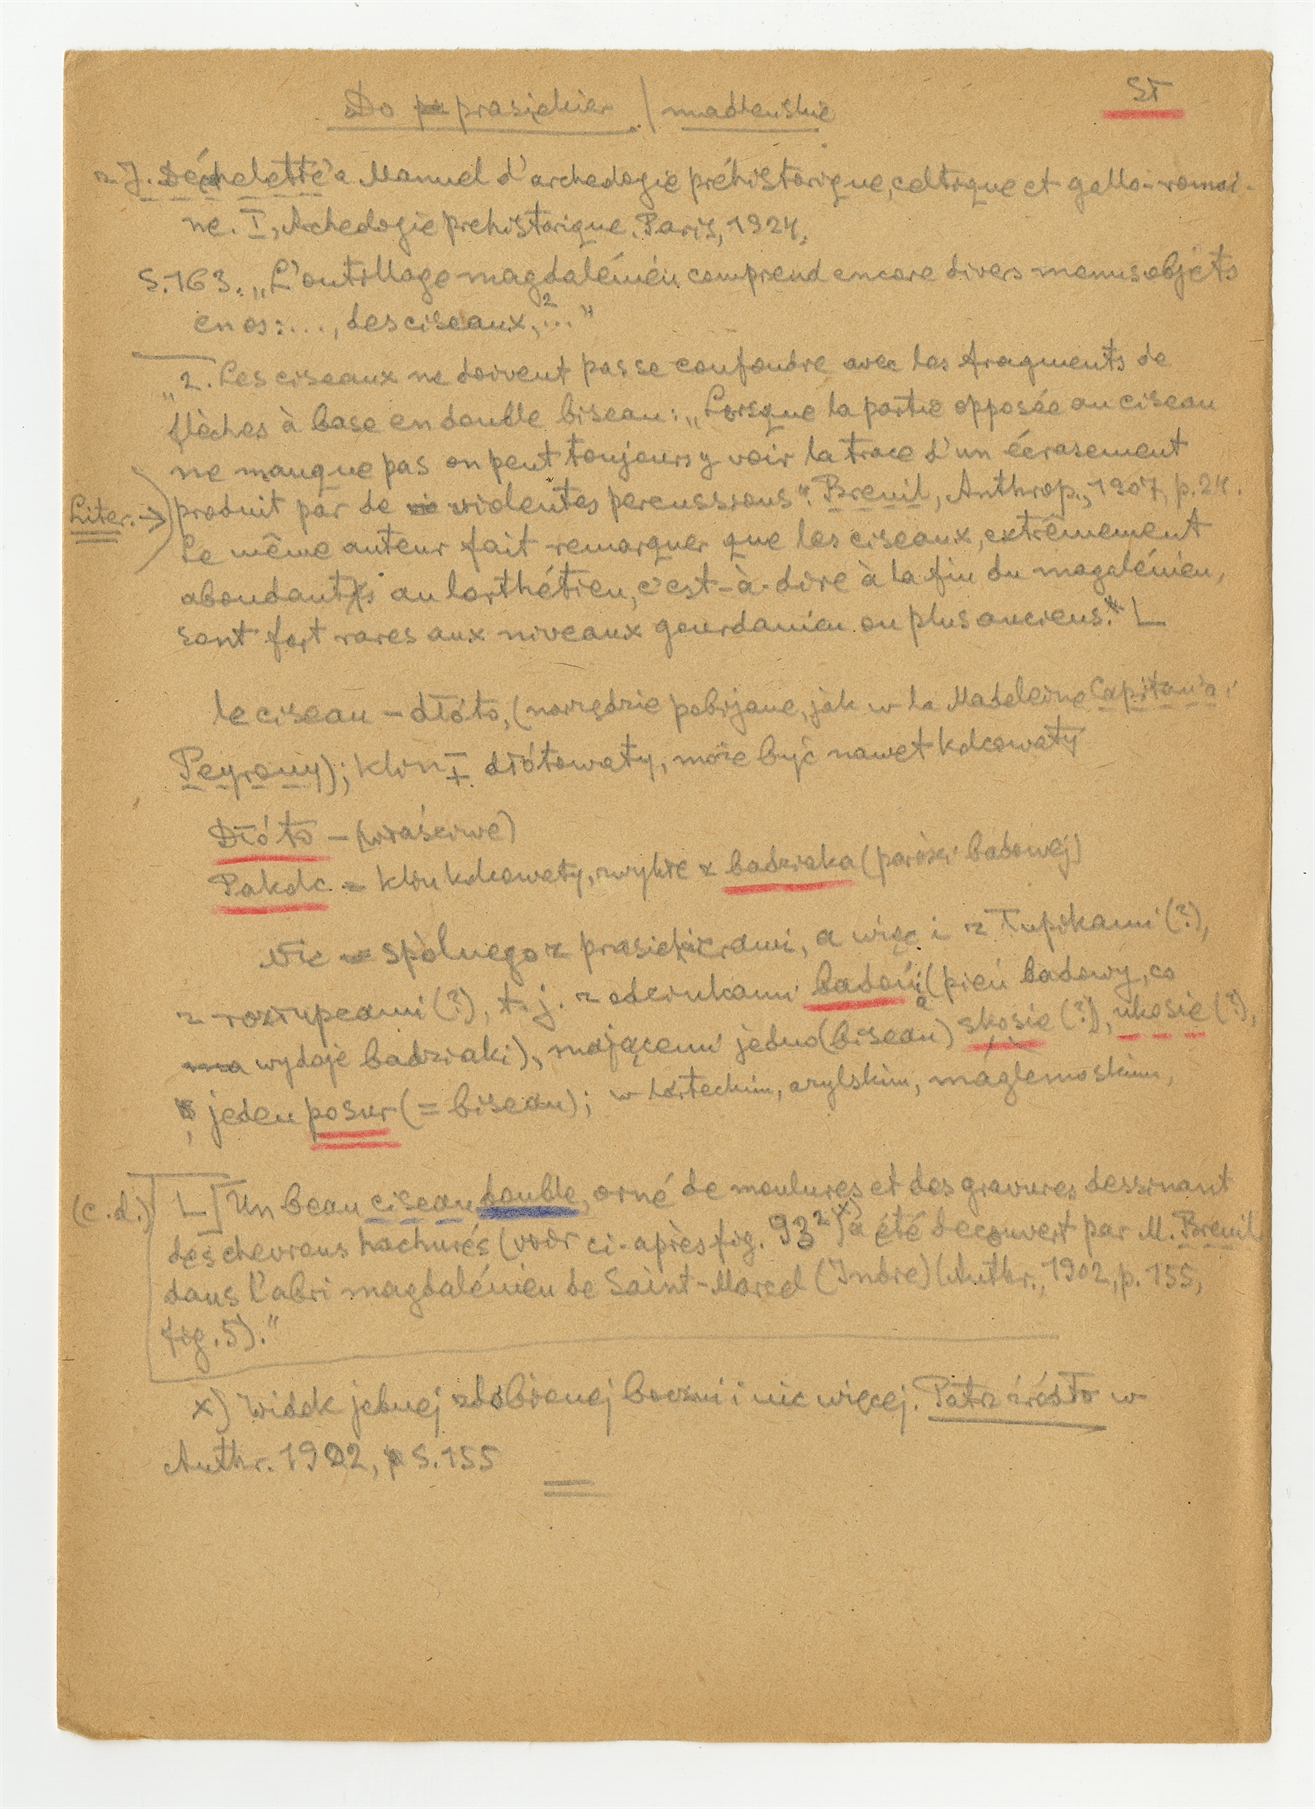 Do prasiekier / madleńskie
St
z J. Déchelette'a Manuel d'archeologie préhistorique, celtique et gallo-romai-
ne. I, Archeologie prehistorique. Paris, 1924,
S. 163. „L'outillage magdalénien comprend encore divers menus objets
en os: ..., des ciseaux,²..."
„2. Les ciseaux ne doivent pas se confondre avec les fragments de
flèches à base en double biseau: „Lorsque la partie opposée au ciseau
ne manque pas on peut toujours y voir la trace d'un écrasement
Liter. → produit par de violentes percussions". Breuil, Anthrop., 1907, p. 24.
Le même auteur fait remarquer que les ciseaux, extrêmement
abondants au lorthétien, c'est-à-dire à la fin du magdalénien,
sont fort rares aux niveaux gourdanien ou plus anciens." L
le ciseau – dłóto, (narzędzie pobijane, jak w la Madeleine Capitan'a i
Peyrony); klin ± dłótowaty, może być nawet kolcowaty
Dłóto – (właściwe)
Pakolc = klin kolcowaty, zwykle z badziaka (parożki badowej)
Nic spólnego z prasiekierami, a więc i z łupikami (?),
z rozłupcami (?), t. j. z odcinkami badoni (pień badowy, co
wydaje badziaki), mającemi jedno (biseau) skosie (?), ukosie (?),
jeden posur (= biseau); w lorteckim, azylskim, maglemoskim,
(c.d.) L] Un beau ciseau double, orné de moulures et des gravures dessinant
des chevrons hachurés (voir ci-après fig. 93²)ˣ⁾ a été decouvert par M. Breuil
dans l'abri magdalénien de Saint-Marcel (Indre) (Anthr., 1902, p. 155,
fig. 5)."
x) Widok jednej zdobionej boczni i nic więcej. Patrz źródło w
Anthr. 1902, S. 155